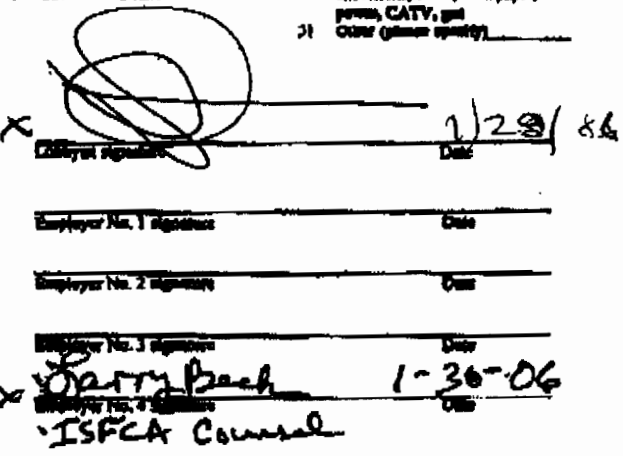 power, CATV, gas
31 Other (please specify)
X 1/28/86
Lobbyist signature Date
Employer No. 1 signature Date
Employer No. 2 signature Date
Employer No. 3 signature Date
X Jerry Beck 1-30-06
Employer No. 4 signature Date
ISFCA Counsel